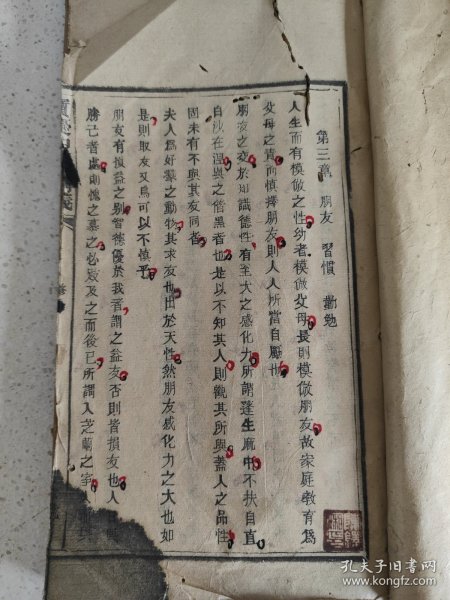 第三章 朋友 習慣 勤勉
人生而有模倣之性幼者模倣父母長則模倣朋友故家庭教育爲
父母之責而慎擇朋友則人人所當自勵也
朋友之交於知識德性有至大之感化力所謂蓬生麻中不扶自直
白沙在涅與之俱黑者也是以不知其人則觀其所與蓋人之品性
固未有不與其友同者
夫人爲好羣之動物其求友也出於天性然朋友感化力之大也如
是則取友又烏可以不慎乎
朋友有損益之別智德優於我者謂之益友否則皆損友也人
勝己者處則愧之慕之必欲及之而後已所謂入芝蘭之室
孔夫子旧书网
www.kongfz.com